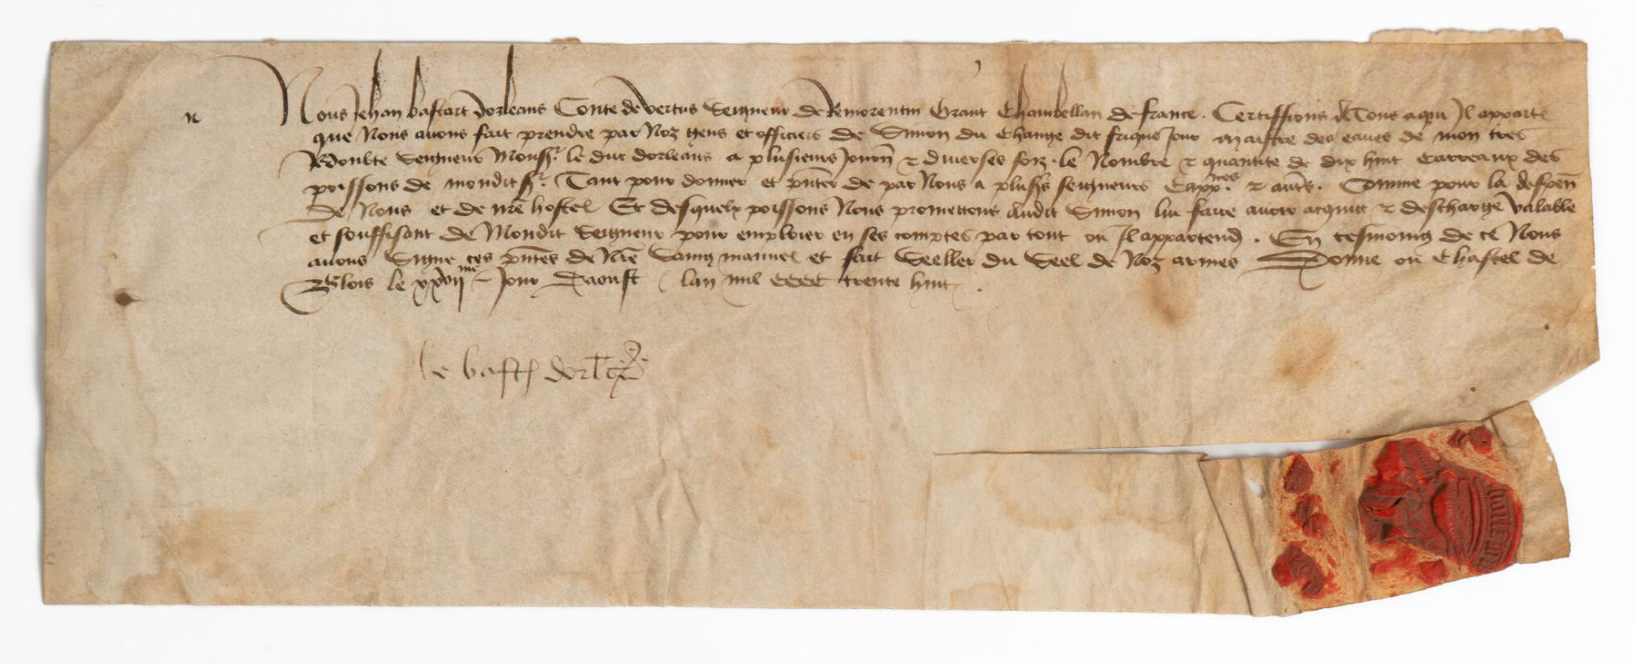 Nous Jehan bastart dorleans Conte de Vertus Seigneur de Remorentin Grant Chambellan de france. Certiffions A Tous aqui Il appartt
que Nous avons fait prendre par Noz gens et officiers de Simon du Change dit maistre des eaues de mon tres
Redoubte Seigneur Monsr. le duc dorleans a plusieurs Journ et diverses foiz. le Nombre et quantite de dix huit Carreaux des
poissons de mondit sr. Tant pour donner et pnter de par Nous a plusrs seigneurs Cappnes. et autrs. Comme pour la despen
De Nous et de nre hostel Et desquelx poissons Nous promettons Audit Simon lui faire avoir acquit et descharge valable
et souffisant De Mondit Seigneur pour emploier en ses comptes par tout ou Il appartendr. En tesmoing de ce Nous
avons Signe ces pntes de Nre Saing manuel et fait Seeller du Seel de Noz armes Donne ou Chastel de
Blois le xxvijme Jour Daoust lan mil cccc trente huit.
le bast dorls